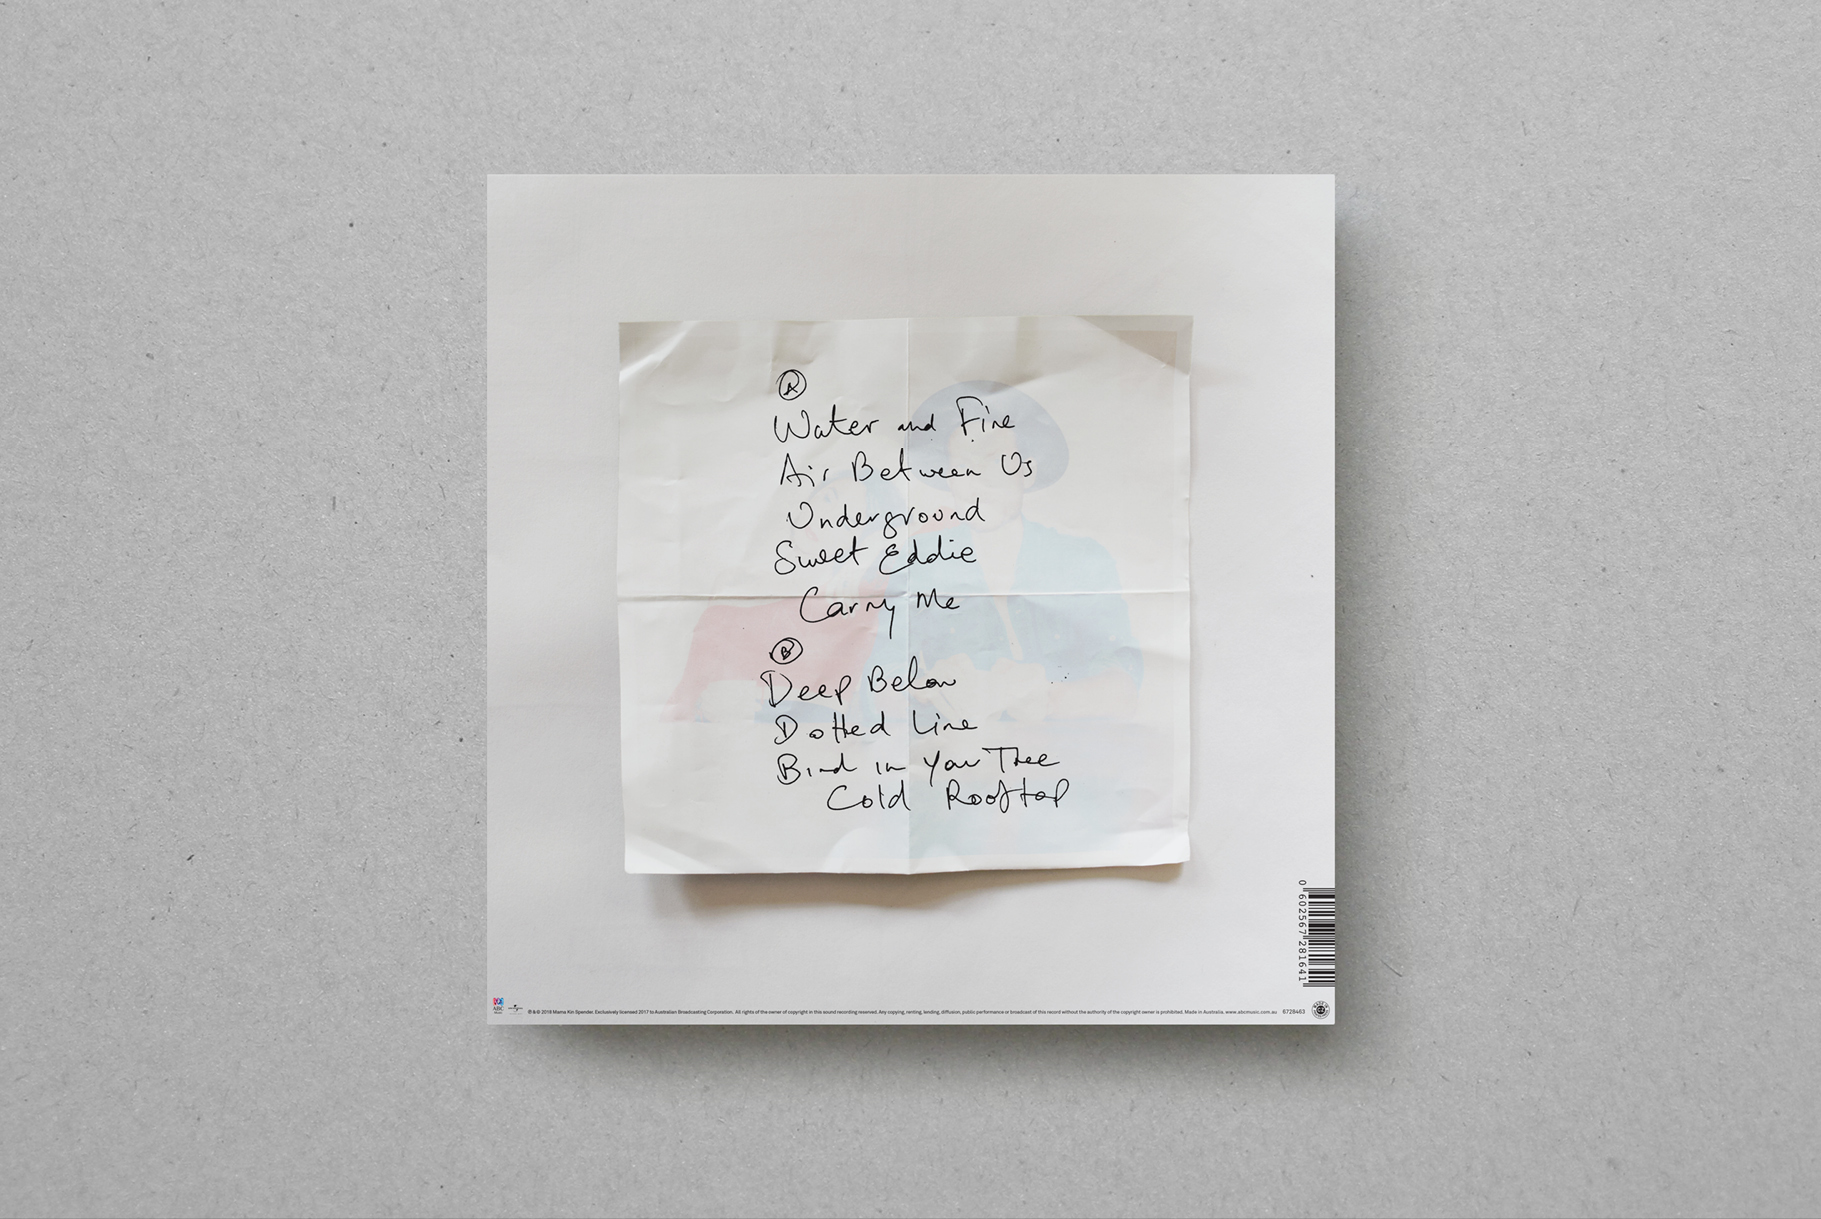 A
Water and Fire
Air Between Us
Underground
Sweet Eddie
Carry Me
B
Deep Below
Dotted Line
Bird in Your Tree
Cold Rooftop
0 602567 281641
ABC
℗ & © 2018 Mama Kin Spender. Exclusively licensed 2017 to Australian Broadcasting Corporation. All rights of the owner of copyright in this sound recording reserved. Any copying, renting, lending, diffusion, public performance or broadcast of this record without the authority of the copyright owner is prohibited. Made in Australia. www.abcmusic.com.au 6728463